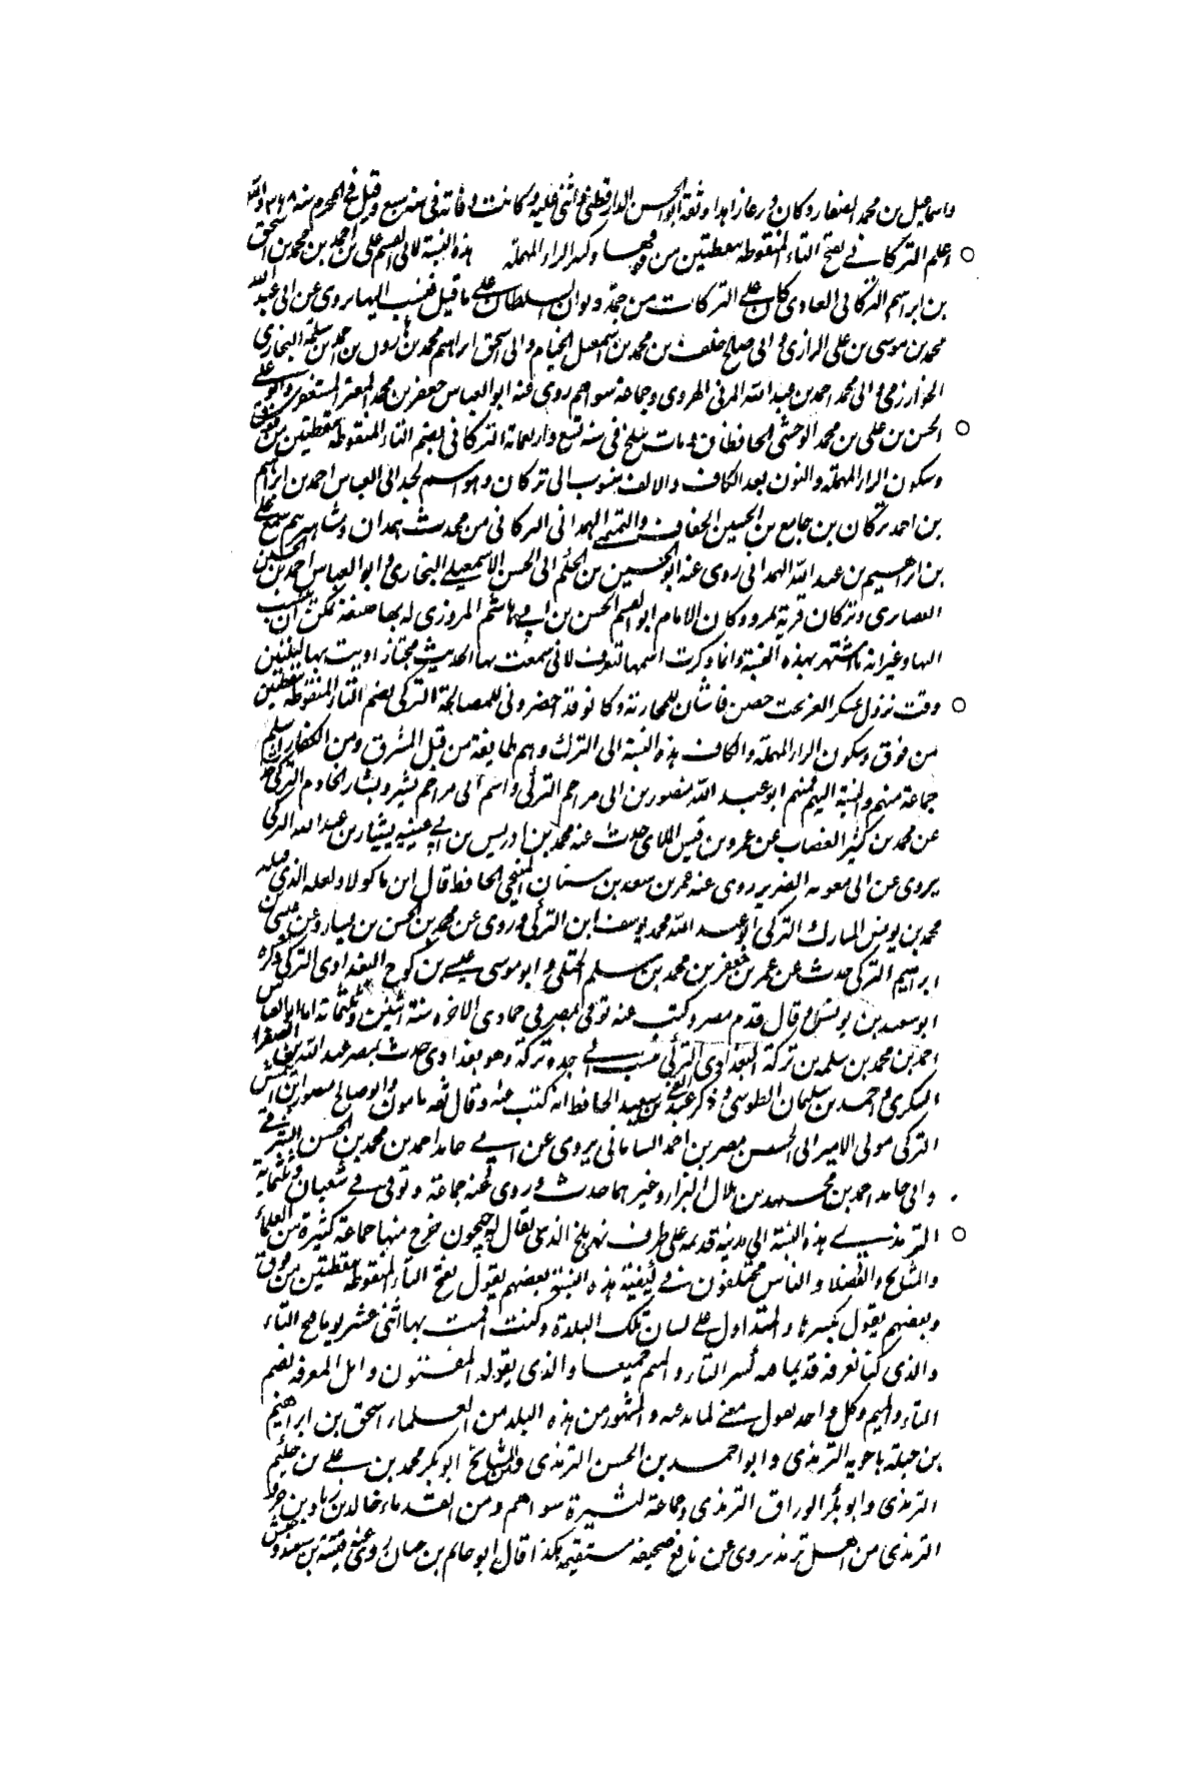 واسماعيل بن محمد الصفار وكان ورعا زاهدا وثقه ابو الحسن الدارقطنى واثنى عليه وكانت وفاته فى سنه سبع وقيل فى المحرم سنه ٣٤٨ والله
اعلم التركانى بفتح التاء المنقوطه بنقطتين من فوقها وكسر الراء المهملة هذه النسبة لابى القسم على بن احمد بن محمد بن اسحق
بن ابراهيم التركانى العادى كان على التركات من جهة ديوان السلطان على ما قيل فنسب اليها يروى عن ابى عبد الله
محمد بن موسى بن على الرازى وابى صالح خلف بن محمد بن اسمعيل الخيام وابى اسحق ابراهيم محمد بن هارون بن احمد بن سلمة البخارى
الخوارزمى وابى محمد احمد بن عبد الله المزنى الهروى وجماعة سواهم روى عنه ابو العباس جعفر بن محمد المعتز المستغفرى وابو على
الحسن بن على بن محمد الوخشى الحافظان ومات ببلخ فى سنه تسع واربعمائة التركانى بضم التاء المنقوطه بنقطتين من فوق
وسكون الراء المهملة والنون بعد الكاف والالف منسوب الى تركان وهو اسم لجد ابى العباس احمد بن ابراهيم
بن احمد تركان بن جامع بن الحسين الخفاف والتميمى الهمدانى التركانى من محدث همدان ومشاهيرهم سمع على
بن ابرهيم بن عبد الله الهمدانى روى عنه ابو الحسين بن الحكم ابى الحسن الاسمعيلى البخارى وابو العباس احمد بن الحسين
العصارى وتركان قرية بمرو وكان الامام ابو القسم الحسن بن ابى هاشم المروزى له بها ضيعة يمكن ان ينسب
اليها وغير انه ما اشتهر بهذه النسبة وانما ذكرت اسمها لتعرف لانى سمعت بها الحديث مجتازا وبت بها ليلتين
وقت نزول عسكر الغز تحت حصن فاشان للمحاربة وكانوا قد احضرونى للمصالحة التركى بضم التاء المنقوطه بنقطتين
من فوق وسكون الراء المهملة والكاف هذه النسبة الى الترك وهم طايفة من قبل المشرق ومن الكفار اسلم
جماعة منهم والنسبة اليهم فمنهم ابو عبد الله منصور بن ابى مزاحم التركى واسم ابى مزاحم بشير وبشار الخادم التركى حدث
عن محمد بن كثير القصاب عن عمرو بن قيس الملاى حدث عنه محمد بن ادريس بن ابى عيينه بيشار بن عبد الله التركى
يروى عن ابى معويه الضرير روى عنه عمر بن سعد بن سنان المنبجى الحافظ قال ابن ماكولا ولعله الذى قبله
محمد بن يونس المبارك التركى ابو عبد الله محمد يوسف ابن التركى وروى عن محمد بن الحسن بن يسار وعن عيسى بن
ابراهيم التركى حدث عن عمر بن جعفر بن محمد بن سلم الختلى وابو موسى عيسى بن كوح البغدادى التركى ذكره
ابو سعيد بن يونس وقال قدم مصر وكتب عنه توفى بمصر فى جمادى الاخره سنة اثنين وثلثمائة اما ابو العباس
احمد بن محمد بن سلمه بن تركة البغدادى التركى نسب الى جده تركة وهو بغدادى حدث بمصر عبد الله بن الصقر
السكرى واحمد بن سليمان الطوسى وذكر عبد الغنى بن سعيد الحافظ انه كتب عنه وقال ثقه مامون وابو صالح منصور ابن
التركى مولى الامير ابى الحسن نصر بن احمد السامانى يروى عن ابى حامد احمد بن محمد بن الحسن الشرقى
وابى حامد احمد بن محمد بن بلال البزار وغيرهما حدث وروى عنه جماعة وتوفى فى شعبان وثلثمائة
الترمذى هذه النسبة الى مدينة قديمه على طرف نهر بلخ الذى يقال له جيحون خرج منها جماعة كثيرة من العلماء
والمشايخ والفضلا والناس مختلفون فى كيفية هذه النسبة بعضهم يقول بفتح التاء المنقوطه بنقطتين من فوق
وبعضهم يقول بكسرها والمتداول على لسان تلك البلدة وكنت اقمت بها اثنى عشر يوما فتح التاء
والذى كنا نعرفه قديما فيه كسر التاء والميم جميعا والذى يقوله المتقنون واهل المعرفه بضم
التاء والميم وكل واحد يقول معنى لما يدعيه والمشهور من هذه البلد من العلماء اسحق بن ابراهيم
بن جبلة باحويه الترمذى وابو احمد بن الحسن الترمذى والمشايخ ابو بكر محمد بن على بن حكيم
الترمذى وابو بكر الوراق الترمذى وجماعة كثيرة سواهم ومن القدماء خالد بن زياد بن جرو
الترمذى من اهل ترمذ يروى عن نافع صحيفه مستقيمة هكذا قال ابو حاتم بن حبان روى عنه قتيبة بن سعيد